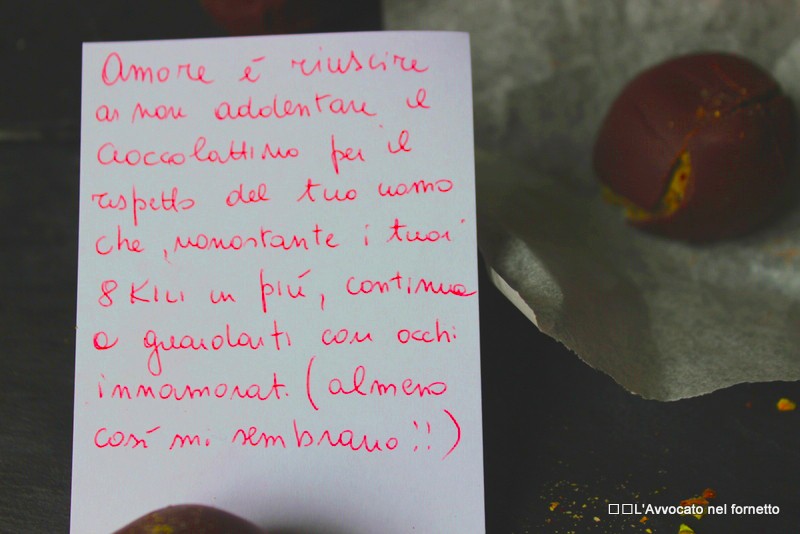 Amore è riuscire
a non addentare il
cioccolattino per il
rispetto del tuo uomo
che, nonostante i tuoi
8 Kili in più, continua
a guardarti con occhi
innamorati (almeno
così mi sembrano!!)
L'Avvocato nel fornetto